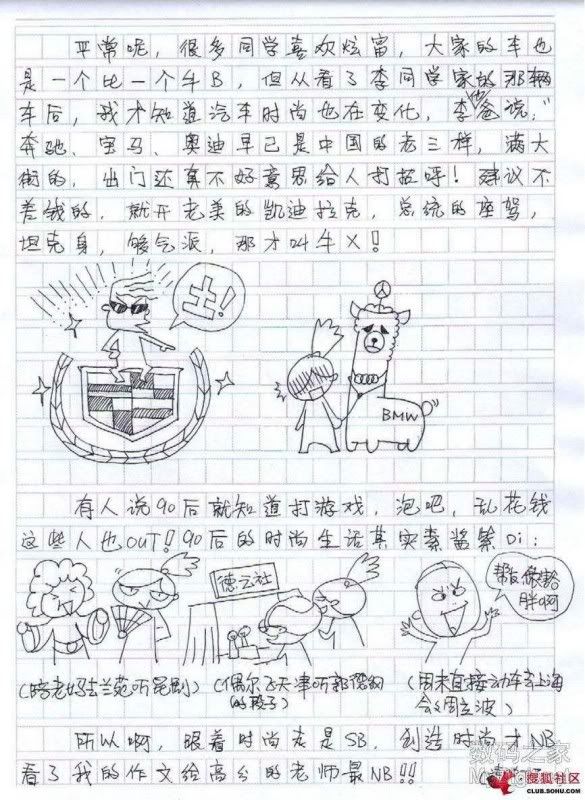 平常呢，很多同学喜欢炫富，大家的车也
是一个比一个牛B，但从看了李同学家的那辆
车后，我才知道汽车时尚也在变化，李爸说，"
奔驰、宝马、奥迪早已是中国的老三样，满大
街的，出门还真不好意思给人打招呼！建议不
差钱的，就开老美的凯迪拉克，总统的座驾，
坦克身，够气派，那才叫牛X！
土！
BMW
有人说90后就知道打游戏，泡吧，乱花钱
这些人也OUT!!90后的时尚生活其实素酱紫Di：
德云社
帮
胖啊
(陪老妈去兰苑听昆剧)
(偶尔飞天津听郭德纲
的段子)
(周末直接动车去上海
会会周立波)
所以啊，跟着时尚走是SB，创造时尚才NB
看了我的作文给高分的老师最NB!!
数码之家
搜狐社区
CLUB.SOHU.COM